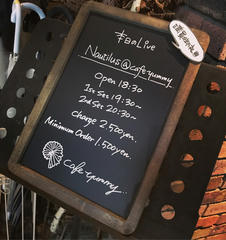 本日のLive
Nautilus@cafe yummy
Open 18:30
1st Set 19:30~
2nd Set 20:30~
Charge 2,500yen.
Minimum Order 1,500yen.
cafe yummy...